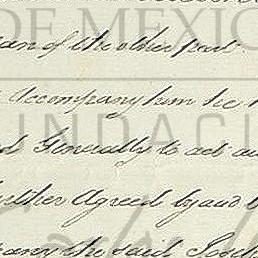 DE MEXICO
an of the other part
accompany him he
UNDACI
d Generally to act au
further Agreed by and b
pany the said